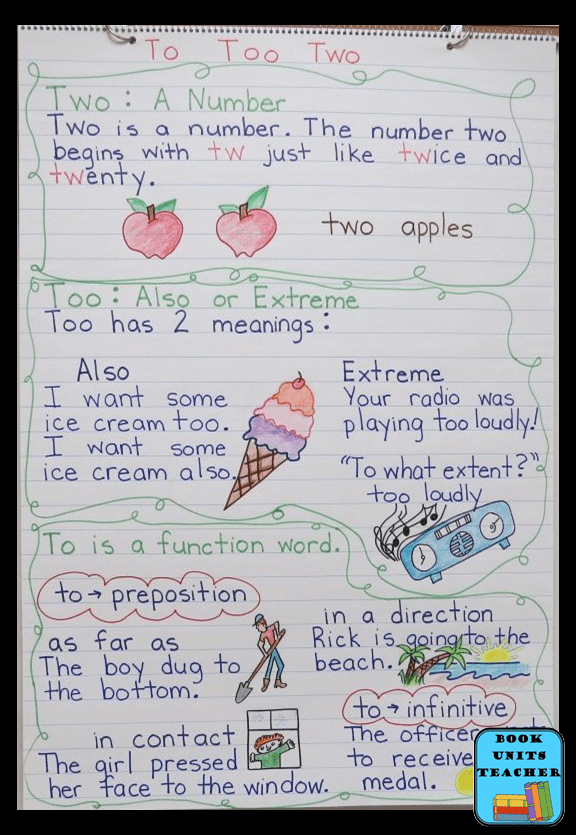 To Too Two
Two: A Number
Two is a number. The number two
begins with tw just like twice and
twenty.
two apples
Too: Also or Extreme
Too has 2 meanings:
Also
I want some
ice cream too.
I want some
ice cream also.
Extreme
Your radio was
playing too loudly!
"To what extent?"
too loudly
To is a function word.
to → preposition
as far as
The boy dug to
the bottom.
in a direction
Rick is going to the
beach.
in contact
The girl pressed
her face to the window.
to → infinitive
The officer
to receive
medal.
BOOK
UNITS
TEACHER